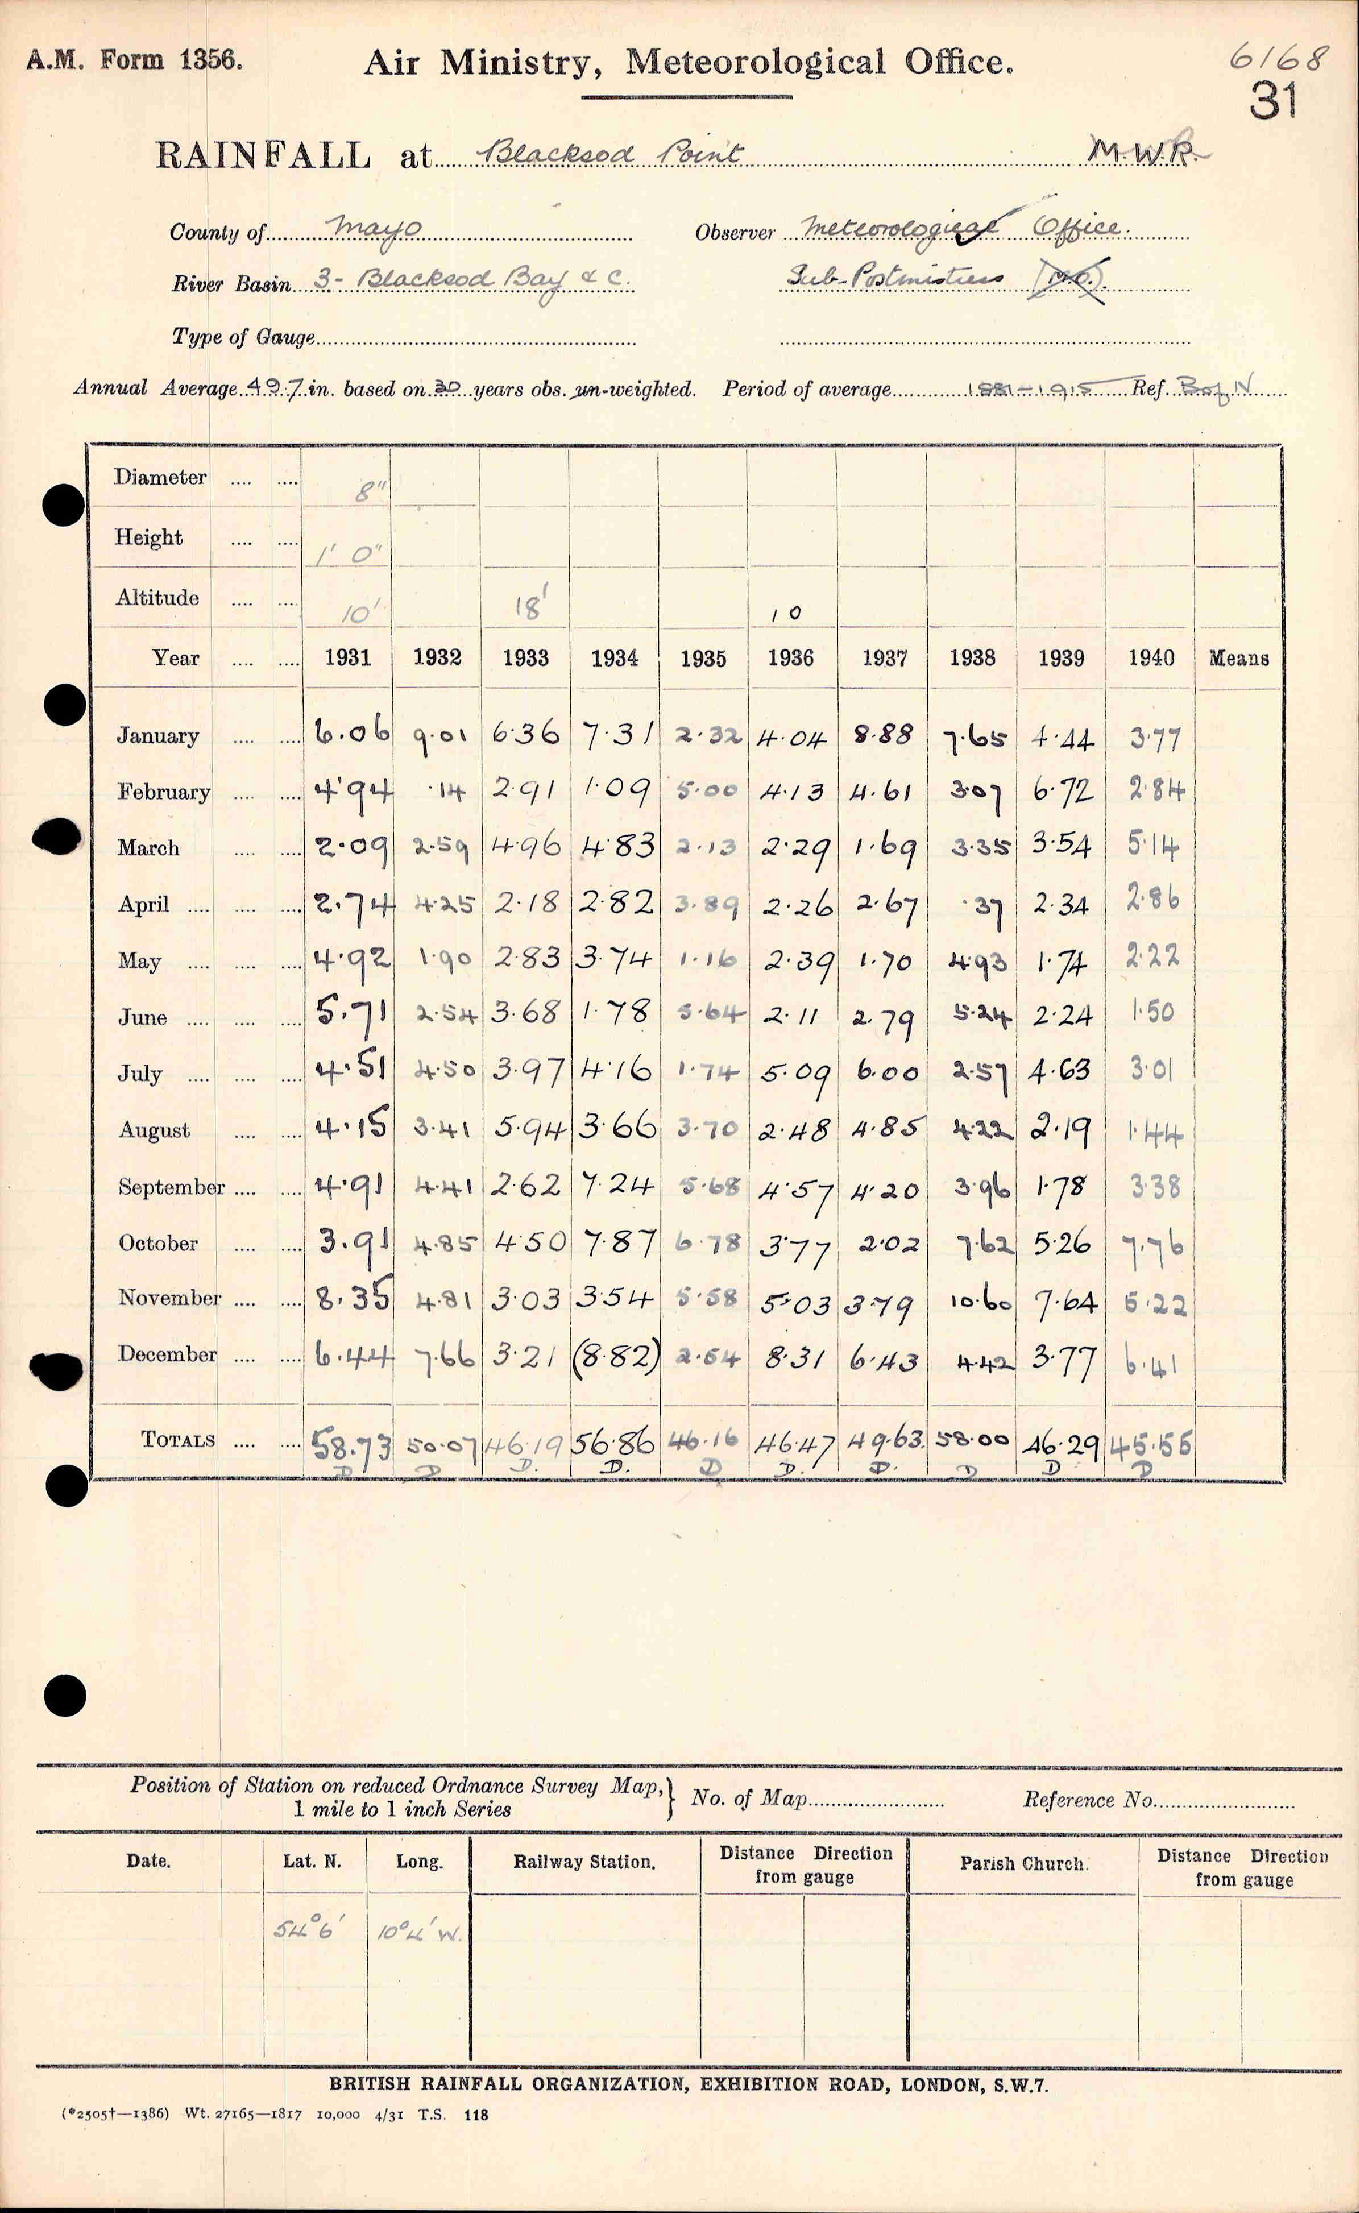 A.M. Form 1356.
Air Ministry, Meteorological Office.
6168
31
RAINFALL at Blacksod Point M.W.R.
County of Mayo Observer Meteorological Office.
River Basin 3- Blacksod Bay & c. Sub-Postmistress (M.O.)
Type of Gauge
Annual Average 49.7 in. based on 30 years obs. un-weighted. Period of average 1881-1915 Ref. B of N
Diameter .... .... 8"
Height .... .... 1' 0"
Altitude .... .... 10' 18' 10
Year .... .... 1931 1932 1933 1934 1935 1936 1937 1938 1939 1940 Means
January .... .... 6.06 9.01 6.36 7.31 2.32 4.04 8.88 7.65 4.44 3.77
February .... .... 4.94 .14 2.91 1.09 5.00 4.13 4.61 3.07 6.72 2.84
March .... .... 2.09 2.59 4.96 4.83 2.13 2.29 1.69 3.35 3.54 5.14
April .... .... .... 2.74 4.25 2.18 2.82 3.89 2.26 2.67 .37 2.34 2.86
May .... .... .... 4.92 1.90 2.83 3.74 1.16 2.39 1.70 4.93 1.74 2.22
June .... .... .... 5.71 2.54 3.68 1.78 5.64 2.11 2.79 5.24 2.24 1.50
July .... .... .... 4.51 4.50 3.97 4.16 1.74 5.09 6.00 2.57 4.63 3.01
August .... .... 4.15 3.41 5.94 3.66 3.70 2.48 4.85 4.22 2.19 1.44
September .... .... 4.91 4.41 2.62 7.24 5.68 4.57 4.20 3.96 1.78 3.38
October .... .... 3.91 4.85 4.50 7.87 6.78 3.77 2.02 7.62 5.26 7.76
November .... .... 8.35 4.81 3.03 3.54 5.58 5.03 3.79 10.60 7.64 5.22
December .... .... 6.44 7.66 3.21 (8.82) 2.54 8.31 6.43 4.42 3.77 6.41
TOTALS .... .... 58.73 50.07 46.19 56.86 46.16 46.47 49.63 58.00 46.29 45.55
D D D. D. D D. D. D D D
Position of Station on reduced Ordnance Survey Map, } No. of Map Reference No.
1 mile to 1 inch Series
Date. Lat. N. Long. Railway Station. Distance Direction from gauge Parish Church. Distance Direction from gauge
54° 6' 10° 4' W.
BRITISH RAINFALL ORGANIZATION, EXHIBITION ROAD, LONDON, S.W.7.
(*2505†—1386) Wt. 27165—1817 10,000 4/31 T.S. 118